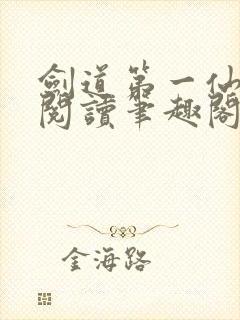 劍道第一仙
閱讀筆趣閣
金海路